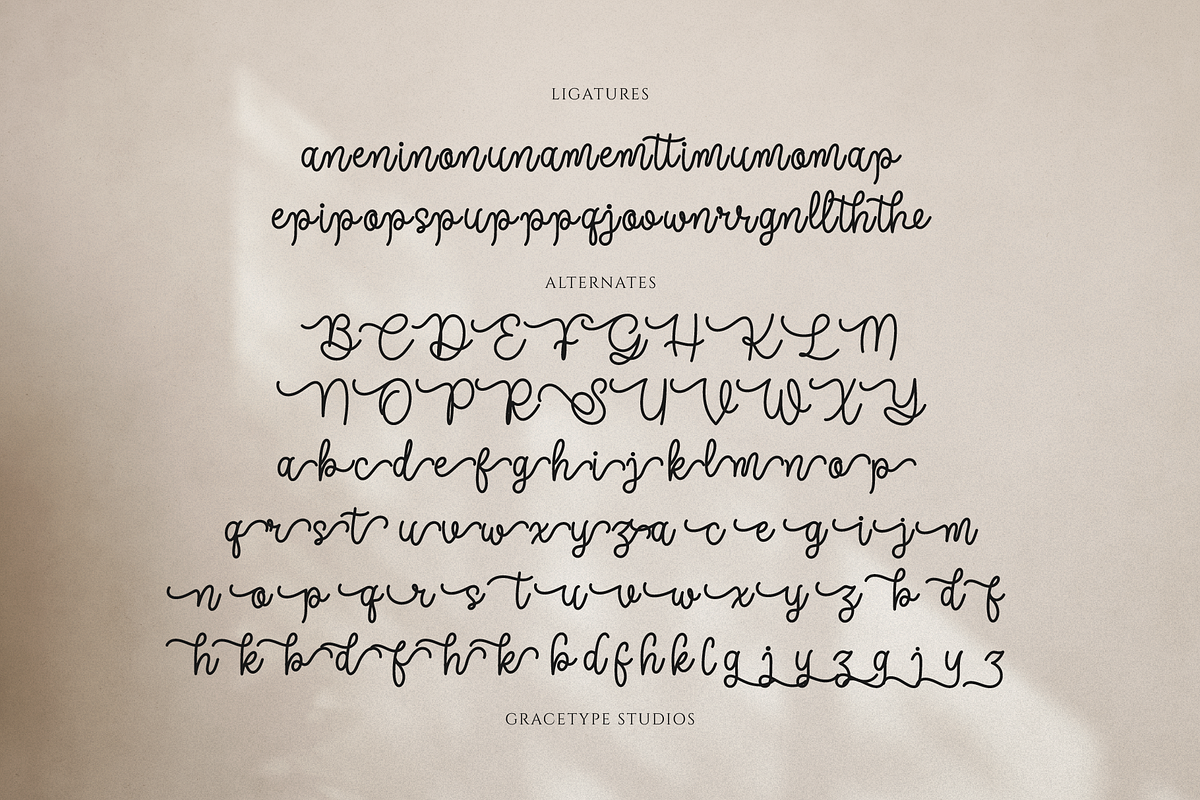 LIGATURES
aneninonunamemttimumomap
epipopspupppqjoownrrgnllththe
ALTERNATES
B C D E F G H K L M
N O P R S U V W X Y
a b c d e f g h i j k l m n o p
q r s t u v w x y z a c e g i j m
n o p q r s t u v w x y z b d f
h k b d f h k b d f h k l g j y z g j y z
GRACETYPE STUDIOS